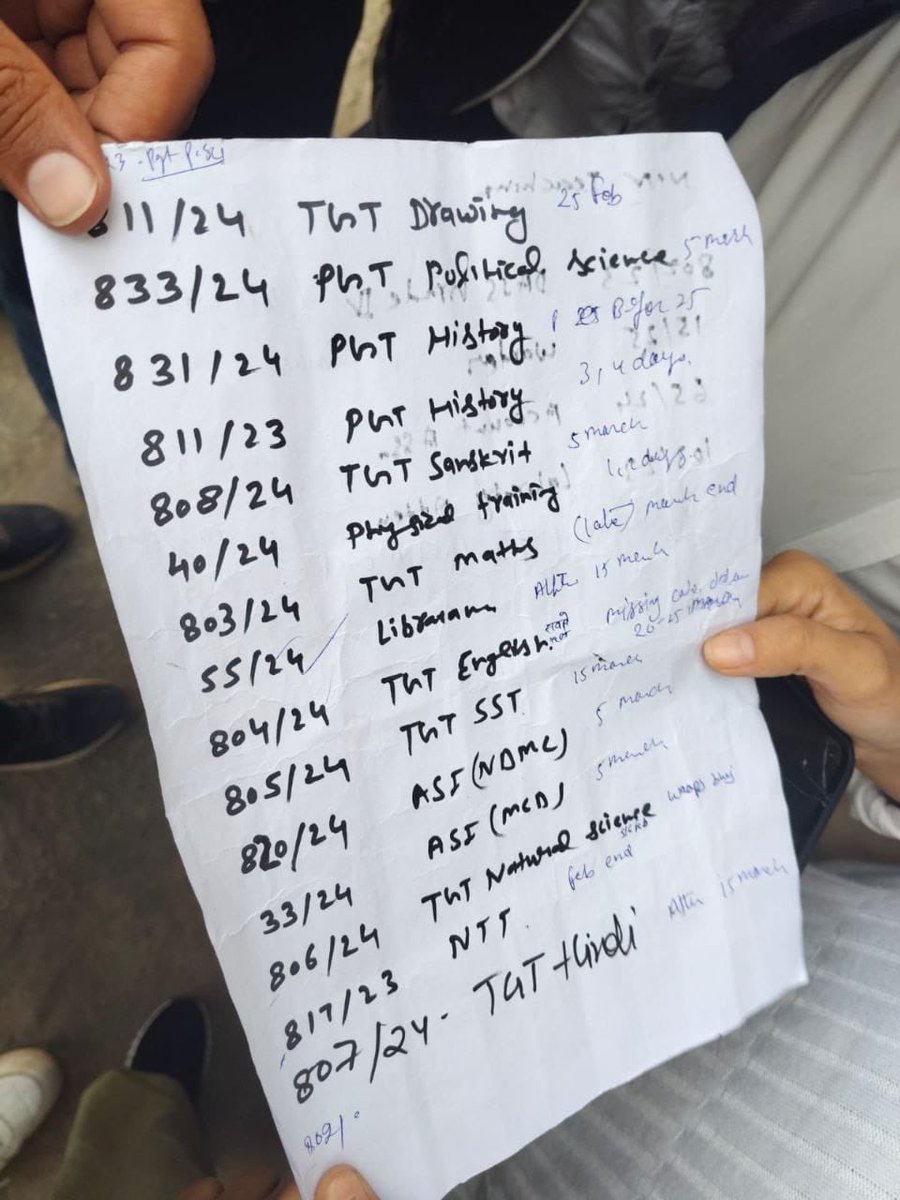 3 - Pgt P.Sci
811/24 TGT Drawing 25 Feb
833/24 PGT Political science 5 march
831/24 PGT History 25
811/23 PGT History 3,4 days.
808/24 TGT Sanskrit 5 march
40/24 Physical training 1,2 days
803/24 TGT maths (late) march end
55/24 Librarian After 15 march
804/24 TGT English missing case 20-25 march
805/24 TGT SST 15 march
820/24 ASI (NDMC) 5 march
33/24 ASI (MCD) 5 march
806/24 TGT Natural science
817/23 NTT. feb end
807/24 - TGT Hindi After 15 march
802/